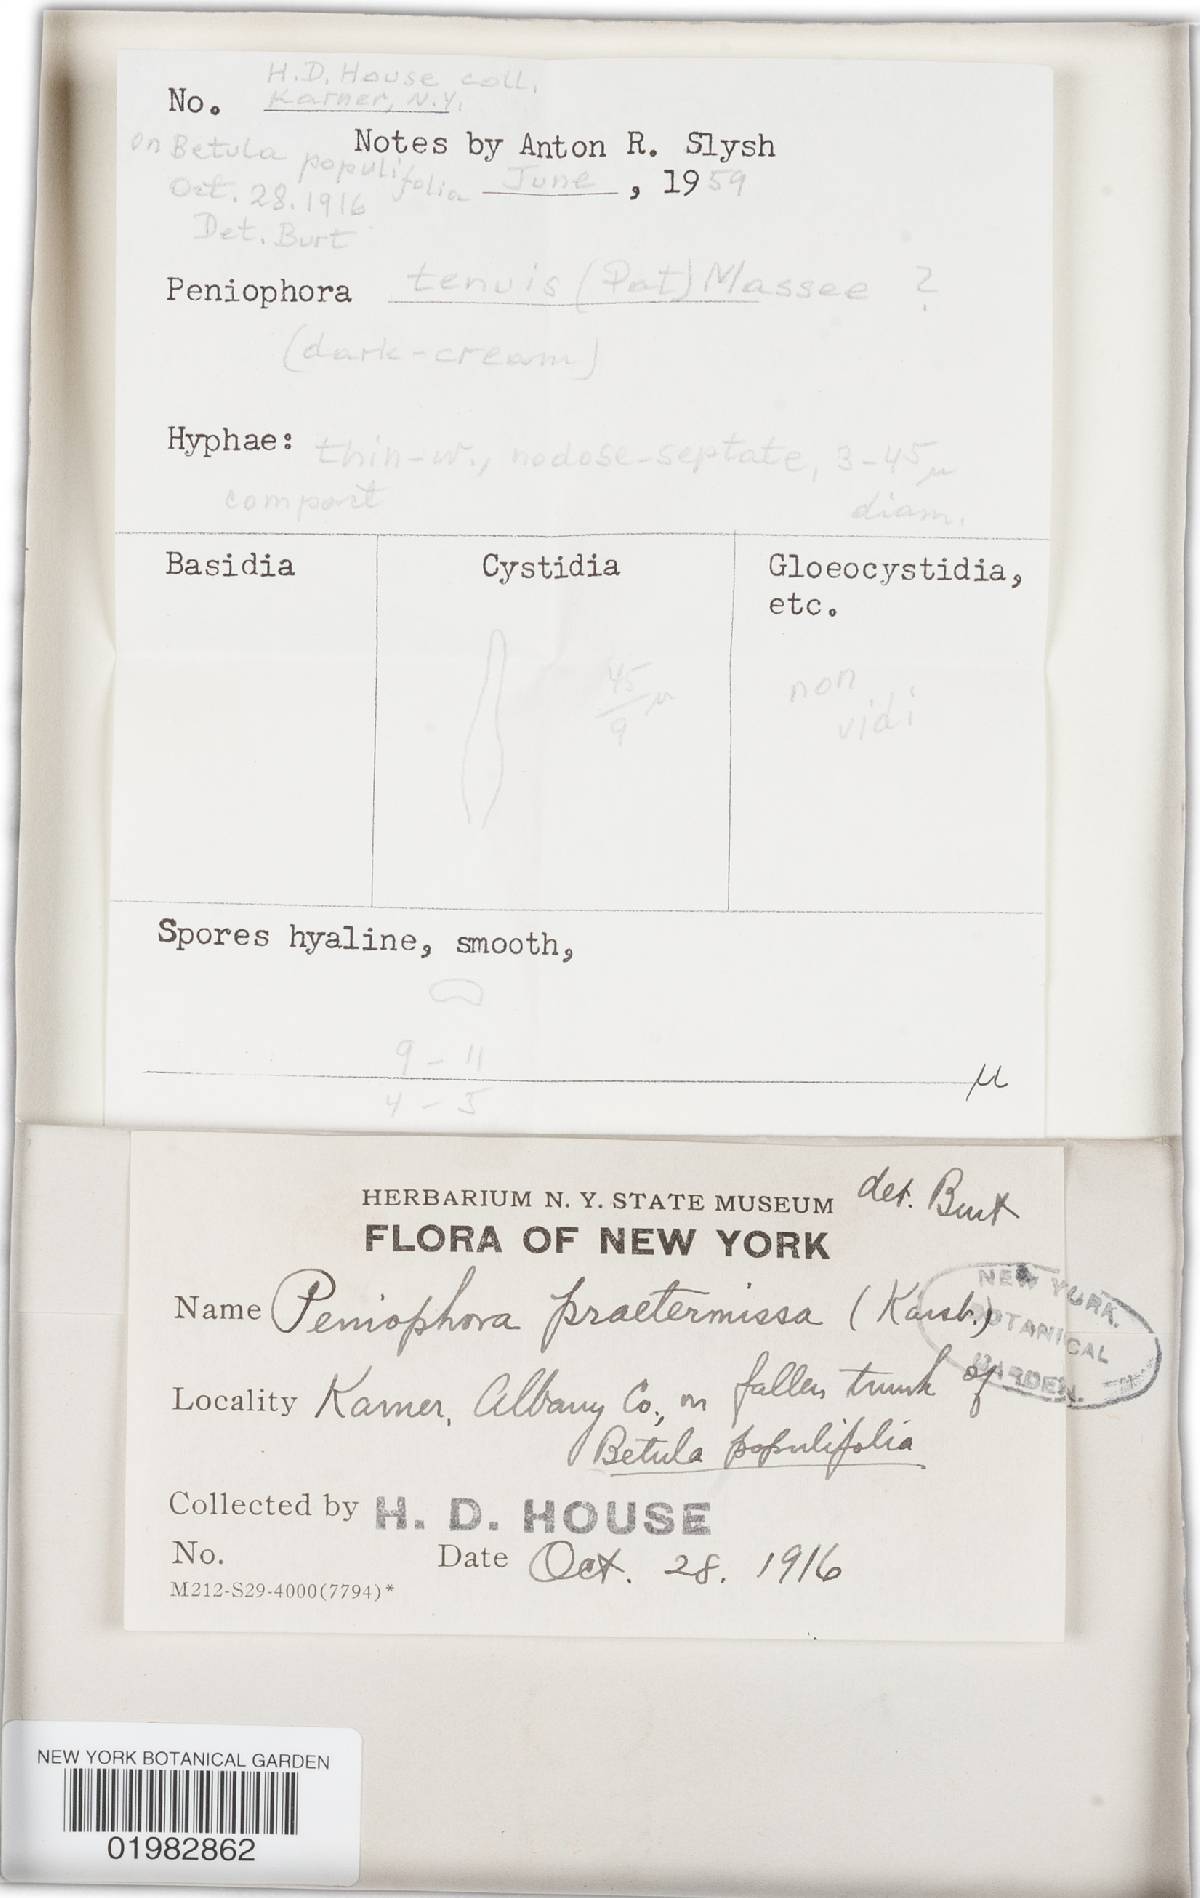 H.D. House coll.
No. Karner, N.Y.
Notes by Anton R. Slysh
on Betula populifolia June, 1959
Oct. 28. 1916
Det. Burt
Peniophora tenuis (Pat) Massee ?
(dark-cream)
Hyphae: thin-w., nodose-septate, 3-45 μ
compact diam.
Basidia Cystidia Gloeocystidia,
etc.
45
9 μ
non
vidi
Spores hyaline, smooth,
9 - 11
μ
4 - 5
HERBARIUM N. Y. STATE MUSEUM det. Burt
FLORA OF NEW YORK
Name Peniophora praetermissa (Karst.)
Locality Karner, Albany Co., on fallen trunk of
Betula populifolia
Collected by H. D. HOUSE
No. Date Oct. 28. 1916
M212-S29-4000(7794)*
NEW YORK
BOTANICAL
GARDEN.
NEW YORK BOTANICAL GARDEN
01982862